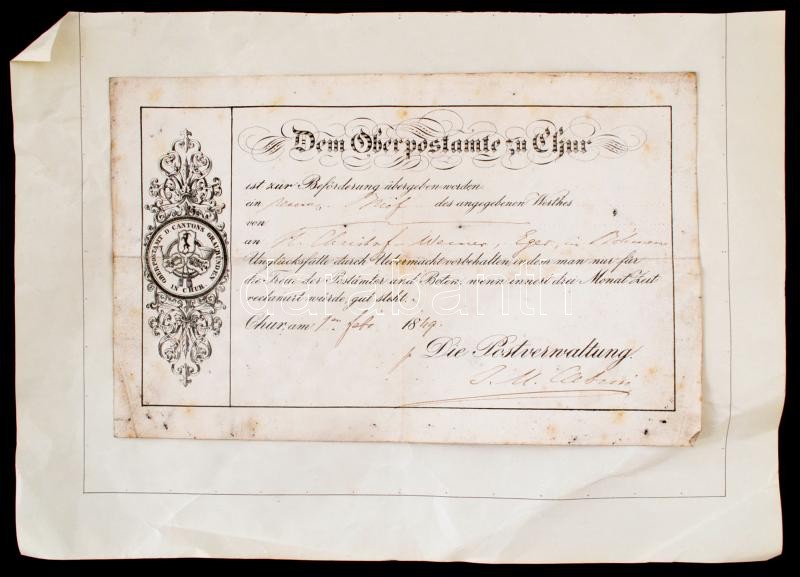 Dem Oberpostamte zu Chur
ist zur Beförderung übergeben worden
ein recom. Brief des angegebenen Werthes
von
an Christof Werner, Eger, in Böhmen
Unglücksfälle durch Uebermacht vorbehalten in dem man nur für
die Treue der Postämter und Boten, wenn innert drei Monat Zeit
reclamirt würde, gut steht.
Chur, am 1ten Feb. 1849.
Die Postverwaltung.
OBERPOSTAMT D CANTONS GRAUBÜNDEN
IN CHUR
darabanth